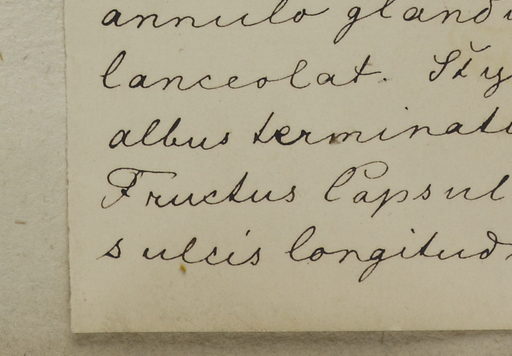 annulo gland
lanceolat. Sty
albus terminat
Fructus Capsul
sulcis longitud